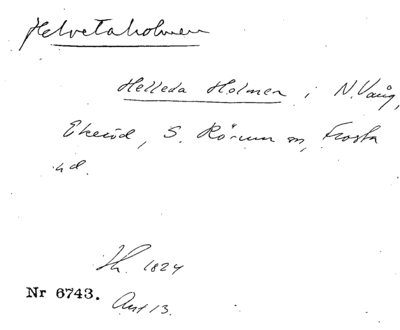 Helvetaholmen
Helleda Holmen i N. Vång,
Ekeröd, S. Rörum sn, Frosta
hd.
Sk. 1824
Nr 6743. Avs 13.